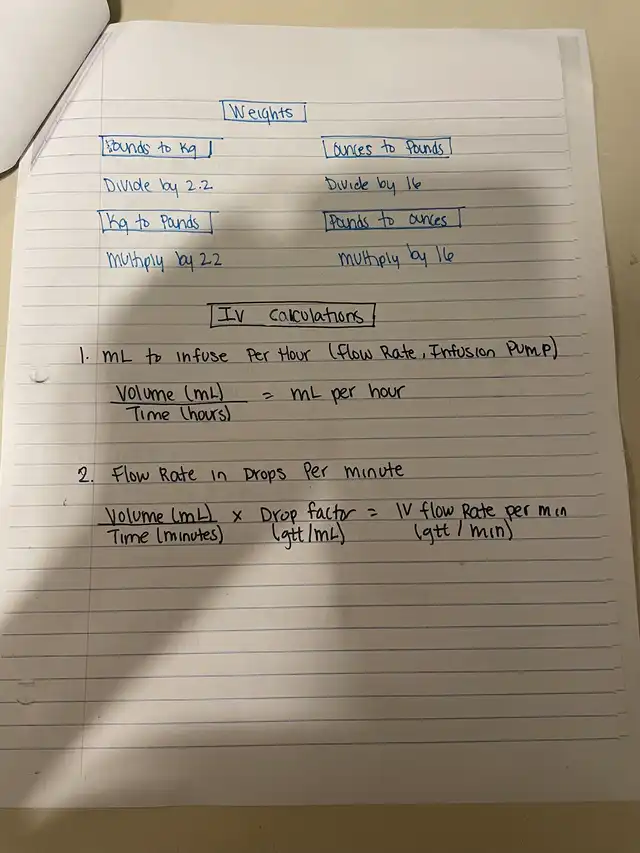 Weights
Pounds to Kg
Ounces to Pounds
Divide by 2.2
Divide by 16
Kg to Pounds
Pounds to ounces
Multiply by 2.2
Multiply by 16
IV Calculations
1. mL to infuse Per Hour (Flow Rate, Infusion Pump)
Volume (mL) = mL per hour
Time (hours)
2. Flow Rate in Drops Per minute
Volume (mL) x Drop factor = IV flow Rate per min
Time (minutes) (gtt/mL) (gtt / min)